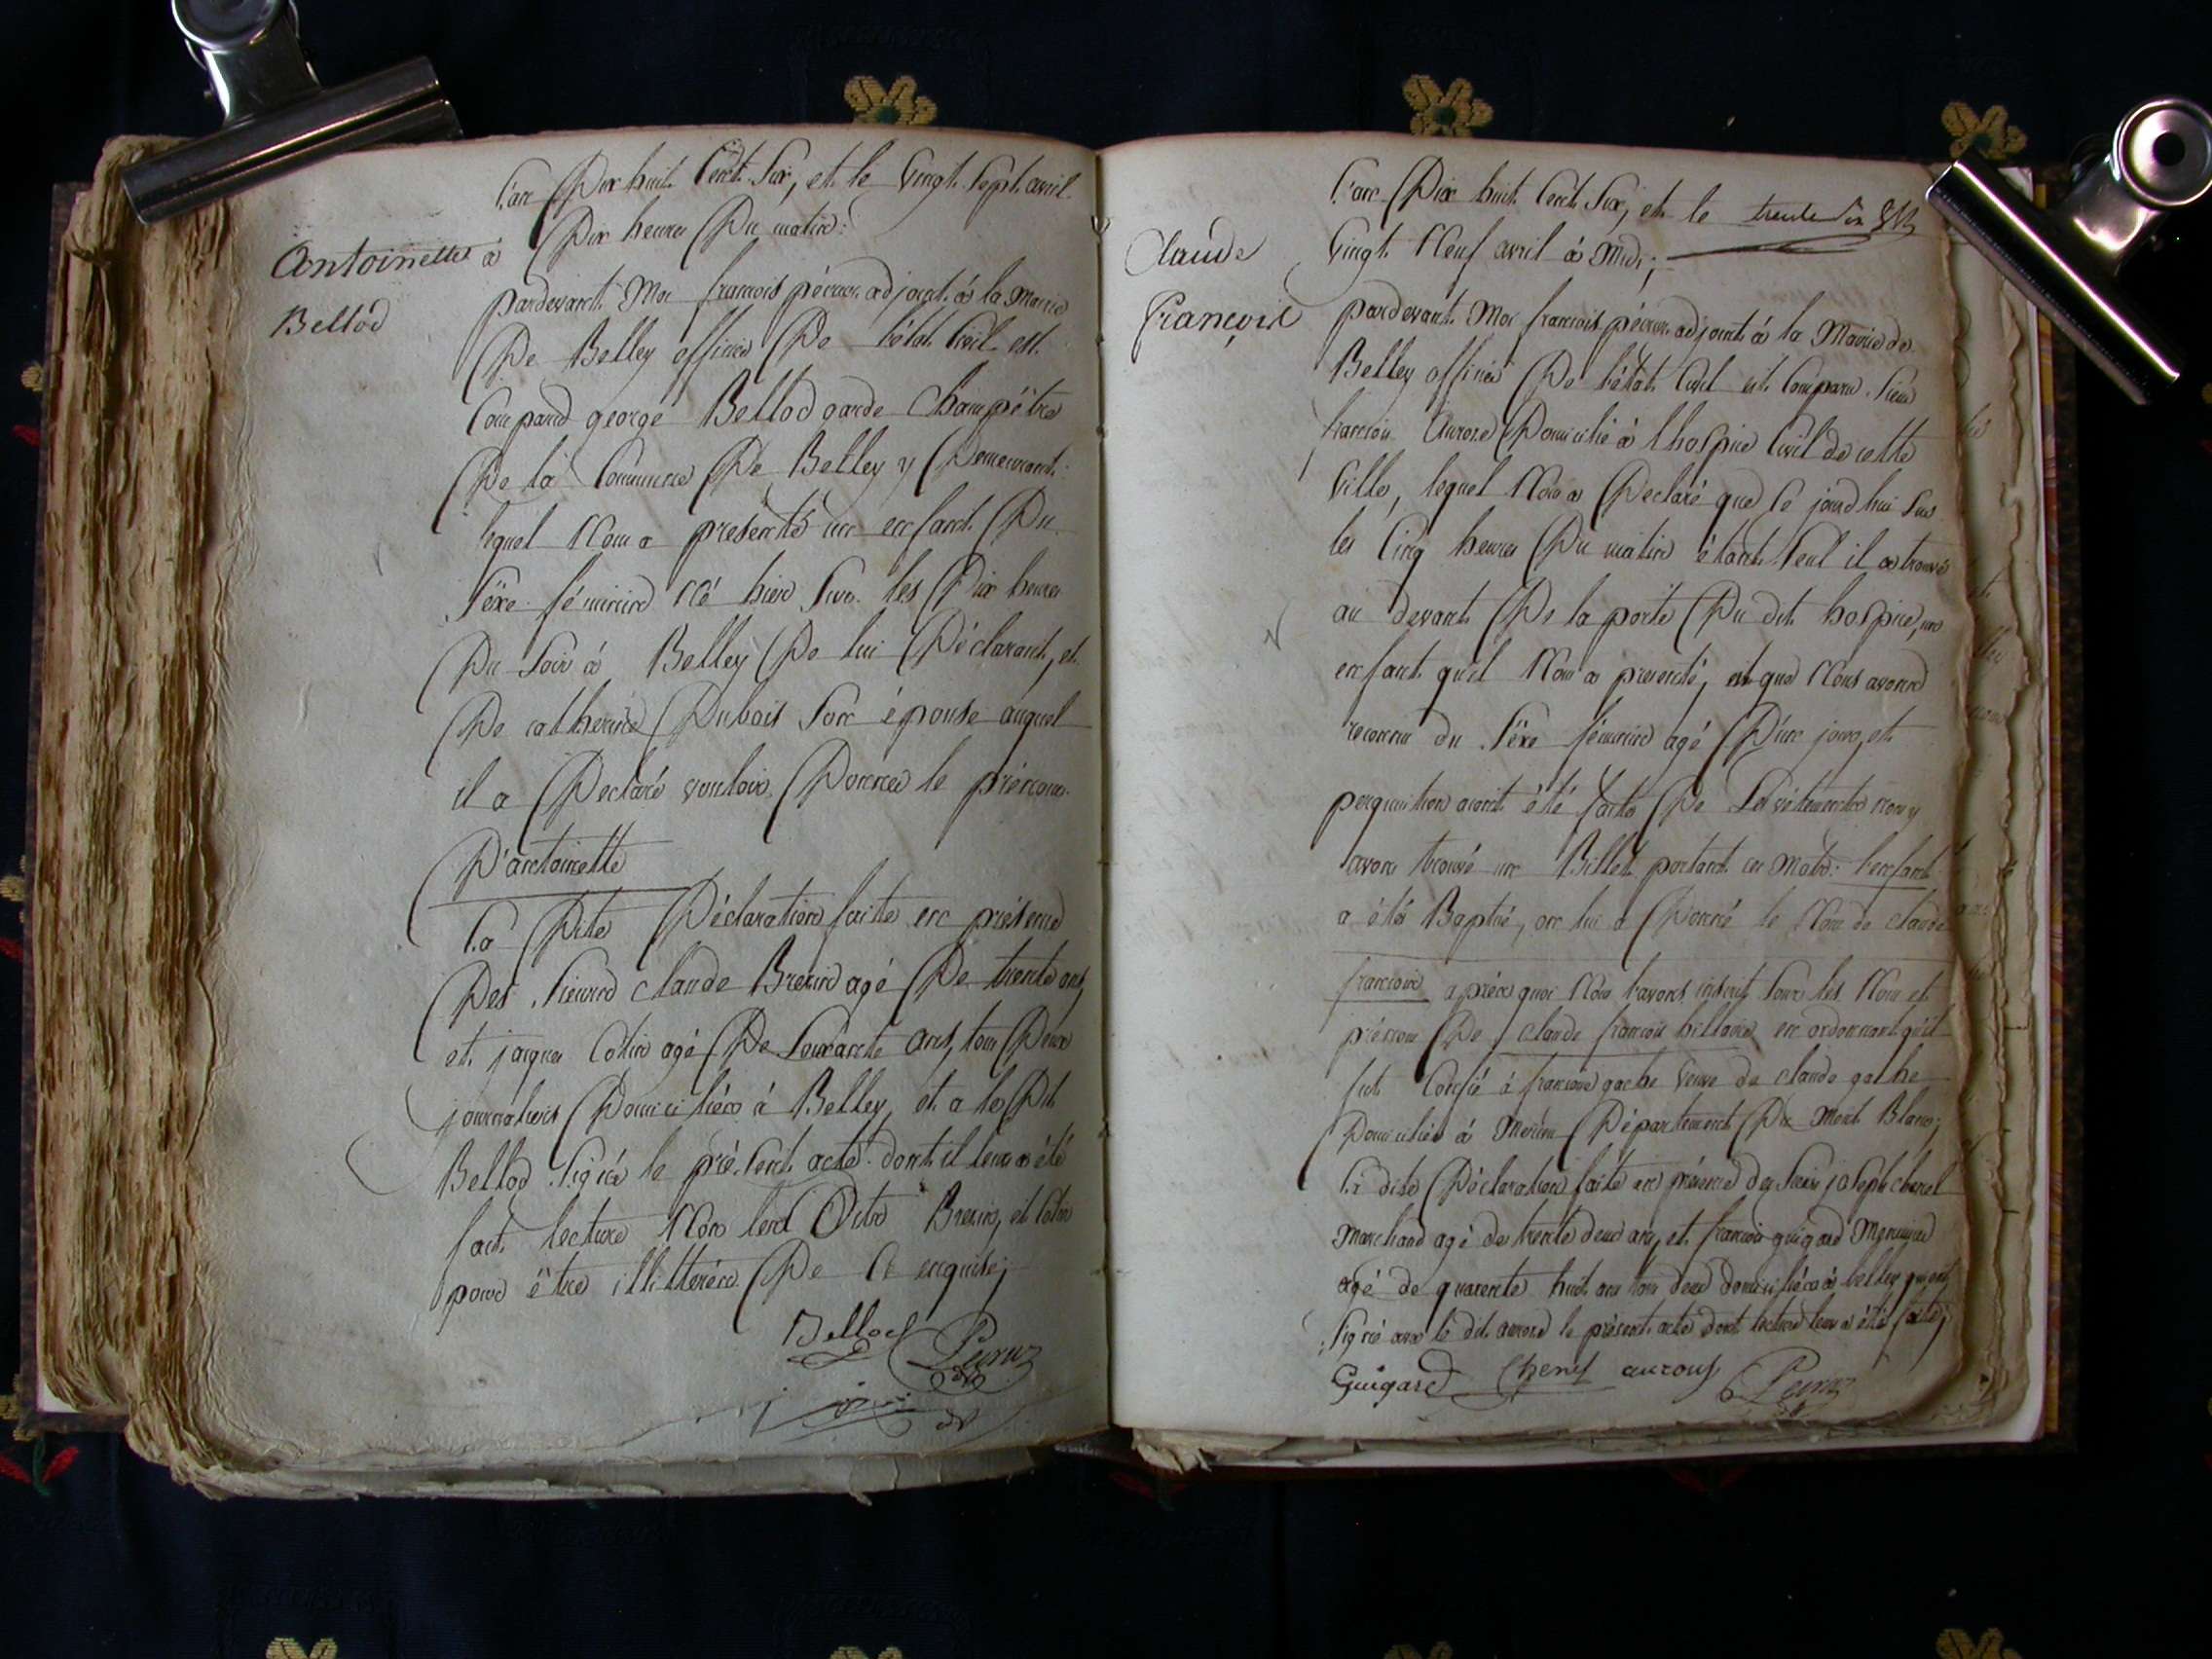 L'an Dix huit Cent Six, et le Vingt Sept avril
à Dix heures Du matin:
Antoinette
Bellod
pardevant Moi francois péruz adjoint à la Mairie
De Belley officier De l'état Civil est
Comparu george Bellod garde Champêtre
De la Commune De Belley y Demeurant
lequel Nous a présenté un enfant Du
Sèxe féminin Né hier Sur les Dix heures
Du Soir à Belley De lui Déclarant, et
De catherine Dubois Son épouse auquel
il a Declaré vouloir Donner le prénom
D'antoinette
La Dite Déclaration faite en présence
Des Sieurs claude Brezin agé De trente ans
et jacques Cotin agé De Soixante ans, tous Deux
journaliers Domiciliés à Belley, et a le Dit
Bellod Signé le présent acte dont il leur a été
fait lecture Non les Dits Brezin, et Cotin
pour être illittérés De Ce enquis;
Bellod Peruz
L'an Dix huit Cent Six, et le trente Six
Vingt Neuf avril à Midi;
Claude
François
pardevant Moi francois péruz adjoint à la Mairie de
Belley officier De l'état Civil est Comparu Sieur
francois Domicilié à l'hospice Civil de cette
Ville, lequel Nous a Declaré que Ce jourd'hui Sur
les Cinq heures Du matin étant Seul il a trouvé
au devant De la porte Du dit hospice, un
enfant qu'il Nous a présenté, et que Nous avons
reconnu du Sèxe féminin agé D'un jour, et
perquisition aiant été faite De Ses vêtements nous y
avons trouvé un Billet portant ces Mots: l'enfant
a étés Baptisé, on lui a Donné le Nom de claude
francois après quoi Nous l'avons inscrit Sous les Nom et
prénom De claude francois hillaire en ordonnant qu'il
fut Confié à francoise gache Veuve de claude gache
Domiciliée à Département Du Mont Blanc;
La dite Déclaration faite en présence des Sieurs joseph chenel
Marchand agé de trente deux ans, et francois guigard Menuisier
agé de quarente huit ans tous deux domiciliés à belley qui ont
Signé avec le dit le présent acte dont lecture leur a été faite;
Guigard Chenel Peruz